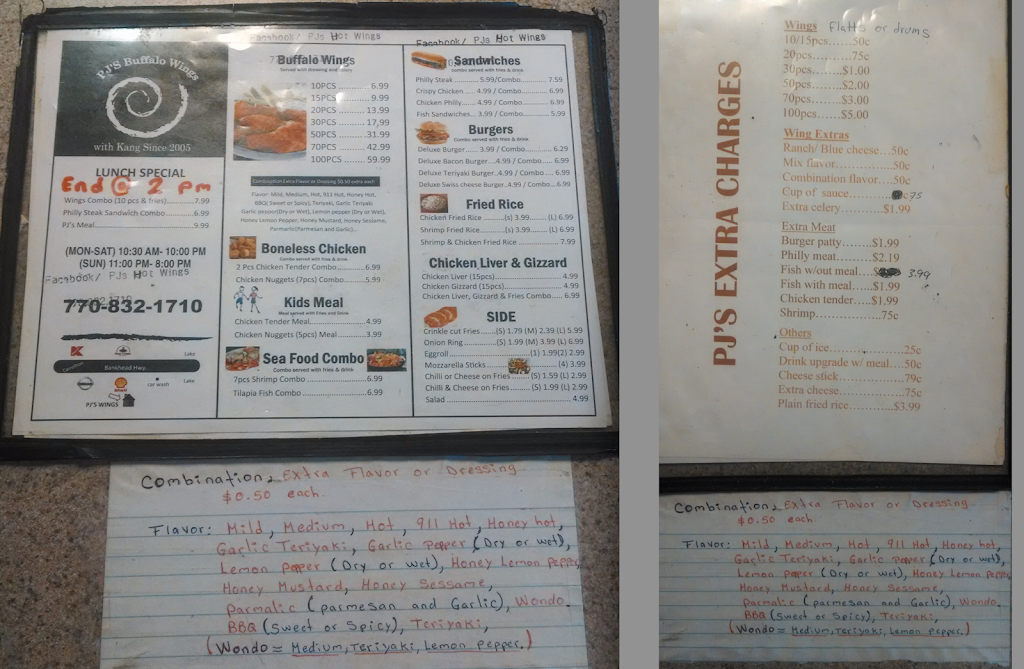 Facebook/ PJs Hot Wings
Facebook/ PJs Hot Wings
PJ'S Buffalo Wings
with Kang Since 2005
LUNCH SPECIAL
End @ 2 pm
Wings Combo (10 pcs & fries)..........7.99
Philly Steak Sandwich Combo..........6.99
PJ's Meal..........9.99
(MON-SAT) 10:30 AM- 10:00 PM
(SUN) 11:00 PM- 8:00 PM
Facebook/ PJs Hot Wings
770-832-1710
K
Lake
Bankhead Hwy.
Shell
car wash
Lake
PJ'S WINGS
Buffalo Wings
10PCS .......... 6.99
15PCS .......... 9.99
20PCS .......... 13.99
30PCS .......... 17.99
50PCS .......... 31.99
70PCS .......... 42.99
100PCS .......... 59.99
Combination Extra Flavor or Dressing $0.50 extra each
Flavor: Mild, Medium, Hot, 911 Hot, Honey Hot,
BBQ( Sweet or Spicy), Teriyaki, Garlic Teriyaki
Garlic pepper(Dry or Wet), Lemon pepper (Dry or Wet),
Honey Lemon Pepper, Honey Mustard, Honey Sessame,
Parmarlic(Parmesan and Garlic)..
Boneless Chicken
Combo served with fries & drink
2 Pcs Chicken Tender Combo..........6.99
Chicken Nuggets (7pcs) Combo..........5.99
Kids Meal
Meal served with Fries and Drink
Chicken Tender Meal..........4.99
Chicken Nuggets (5pcs) Meal..........3.99
Sea Food Combo
Combo served with fries & drink
7pcs Shrimp Combo..........6.99
Tilapia Fish Combo..........6.99
Sandwiches
combo served with fries & drink
Philly Steak ..........5.99/Combo..........7.59
Crispy Chicken ..... 4.99 / Combo..........6.99
Chicken Philly..... 4.99 / Combo..........6.99
Fish Sandwiches... 3.99 / Combo..........5.99
Burgers
Combo served with fries & drink
Deluxe Burger..... 3.99 / Combo..........6.29
Deluxe Bacon Burger...4.99 / Combo..... 6.99
Deluxe Teriyaki Burger..4.99 / Combo.....6.99
Deluxe Swiss cheese Burger..4.99 /Combo...6.99
Fried Rice
Chicken Fried Rice ..........(s) 3.99.....(L) 6.99
Shrimp Fried Rice ..........(s) 3.99.....(L) 6.99
Shrimp & Chicken Fried Rice .......... 7.99
Chicken Liver & Gizzard
Chicken Liver (15pcs)..........4.99
Chicken Gizzard (15pcs)..........4.99
Chicken Liver, Gizzard & Fries Combo.... 6.99
SIDE
Crinkle cut Fries.....(S) 1.79 (M) 2.39 (L) 5.99
Onion Ring..........(S) 1.99 (M) 3.99 (L) 6.99
Eggroll..........(1) 1.99(2) 2.99
Mozzarella Sticks..........(4) 3.99
Chilli or Cheese on Fries.....(S) 1.59 (L) 2.99
Chilli & Cheese on Fries.....(S) 1.99 (L) 2.99
Salad .......... 4.99
Combination, Extra Flavor or Dressing
$0.50 each
Flavor: Mild, Medium, Hot, 911 Hot, Honey hot,
Garlic Teriyaki, Garlic Pepper (Dry or wet),
Lemon Pepper (Dry or wet), Honey Lemon Pepper,
Honey Mustard, Honey Sessame,
Parmalic (parmesan and Garlic), Wondo.
BBQ (Sweet or Spicy), Teriyaki,
(Wondo = Medium, Teriyaki, Lemon Pepper.)
PJ'S EXTRA CHARGES
Wings Flatts or drums
10/15pcs......50c
20pcs..........75c
30pcs........$1.00
50pcs........$2.00
70pcs........$3.00
100pcs......$5.00
Wing Extras
Ranch/ Blue cheese...50c
Mix flavor..........50c
Combination flavor....50c
Cup of sauce..........c75
Extra celery.......$1.99
Extra Meat
Burger patty........$1.99
Philly meat........$2.19
Fish w/out meal....$ 3.99
Fish with meal.....$1.99
Chicken tender....$1.99
Shrimp..........75c
Others
Cup of ice..........25c
Drink upgrade w/ meal....50c
Cheese stick..........79c
Extra cheese..........75c
Plain fried rice........$3.99
Combination, Extra Flavor or Dressing
$0.50 each
Flavor: Mild, Medium, Hot, 911 Hot, Honey hot,
Garlic Teriyaki, Garlic Pepper (Dry or wet),
Lemon Pepper (Dry or wet), Honey Lemon Pepper,
Honey Mustard, Honey Sessame,
Parmalic (parmesan and Garlic), Wondo.
BBQ (Sweet or Spicy), Teriyaki,
(Wondo = Medium, Teriyaki, Lemon Pepper.)